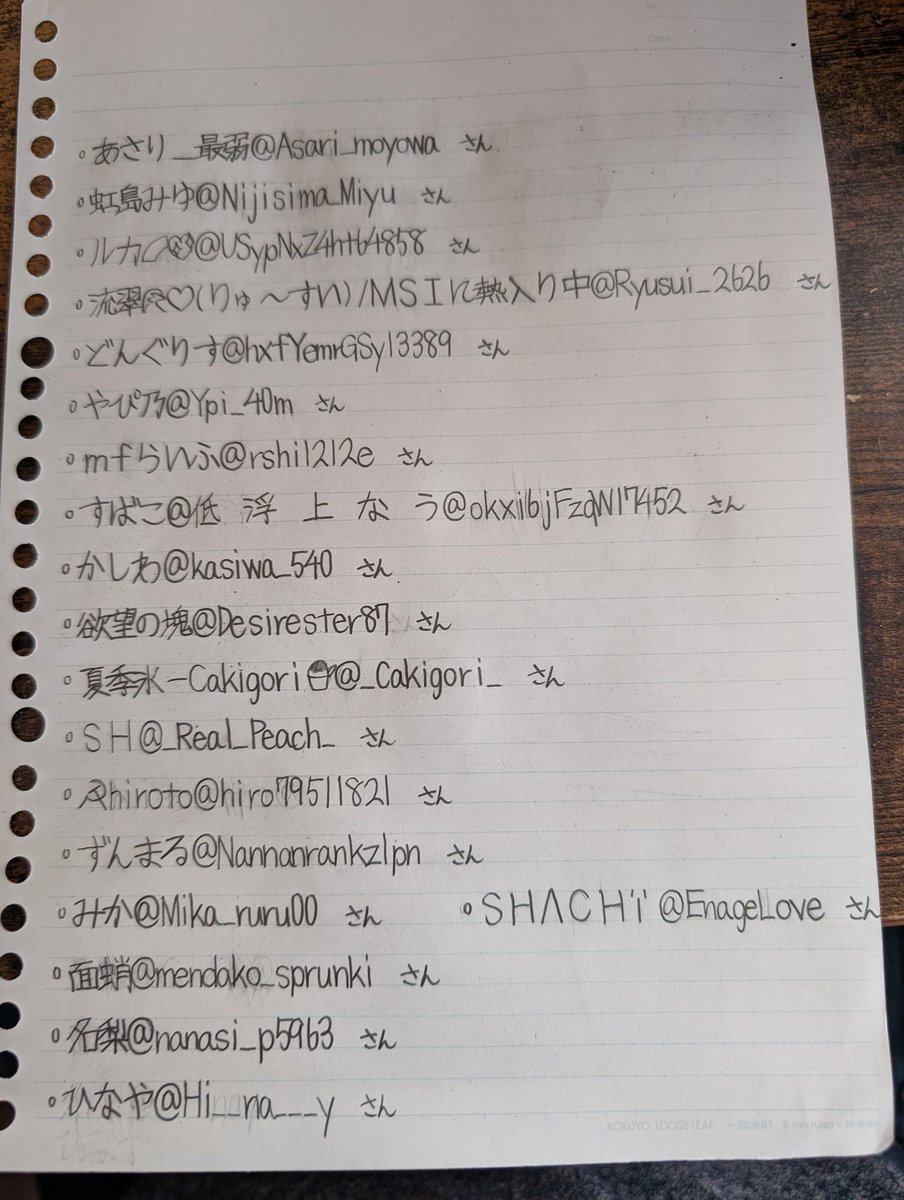 No.
Date
。あさり__最弱@Asari_moyowa さん
。虹島みゆ@Nijisima_Miyu さん
。ルカ@USypNxZ4ht64858 さん
。流翠♡(りゅ〜すい)/MSIに熱入り中@Ryusui_2626 さん
。どんぐりす@hxfYemrGSy13389 さん
。やぴ乃@Ypi_40m さん
。mfらいふ@rshi1212e さん
。すばこ@低 浮 上 な う@okxiibjFzqW17452 さん
。かしわ@kasiwa_540 さん
。欲望の塊@Desirester87 さん
。夏季氷-Cakigori🍧@_Cakigori_ さん
。SH@_Real_Peach_ さん
。hiroto@hiro79511821 さん
。ずんまる@Nannanrankz1pn さん
。みか@Mika_ruru00 さん 。SHΛCH'i'@EnageLove さん
。面蛸@mendako_sprunki さん
。名梨@nanasi_p5963 さん
。ひなや@Hi__na___y さん
KOKUYO LOOSE-LEAF ノ-S836BT 6 mm ruled × 36 lines